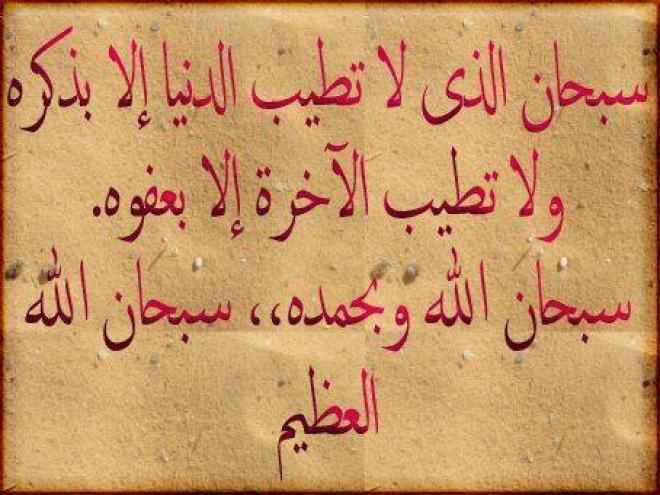 سبحان الذى لا تطيب الدنيا إلا بذكره
ولا تطيب الآخرة إلا بعفوه.
سبحان الله وبحمده،، سبحان الله
العظيم